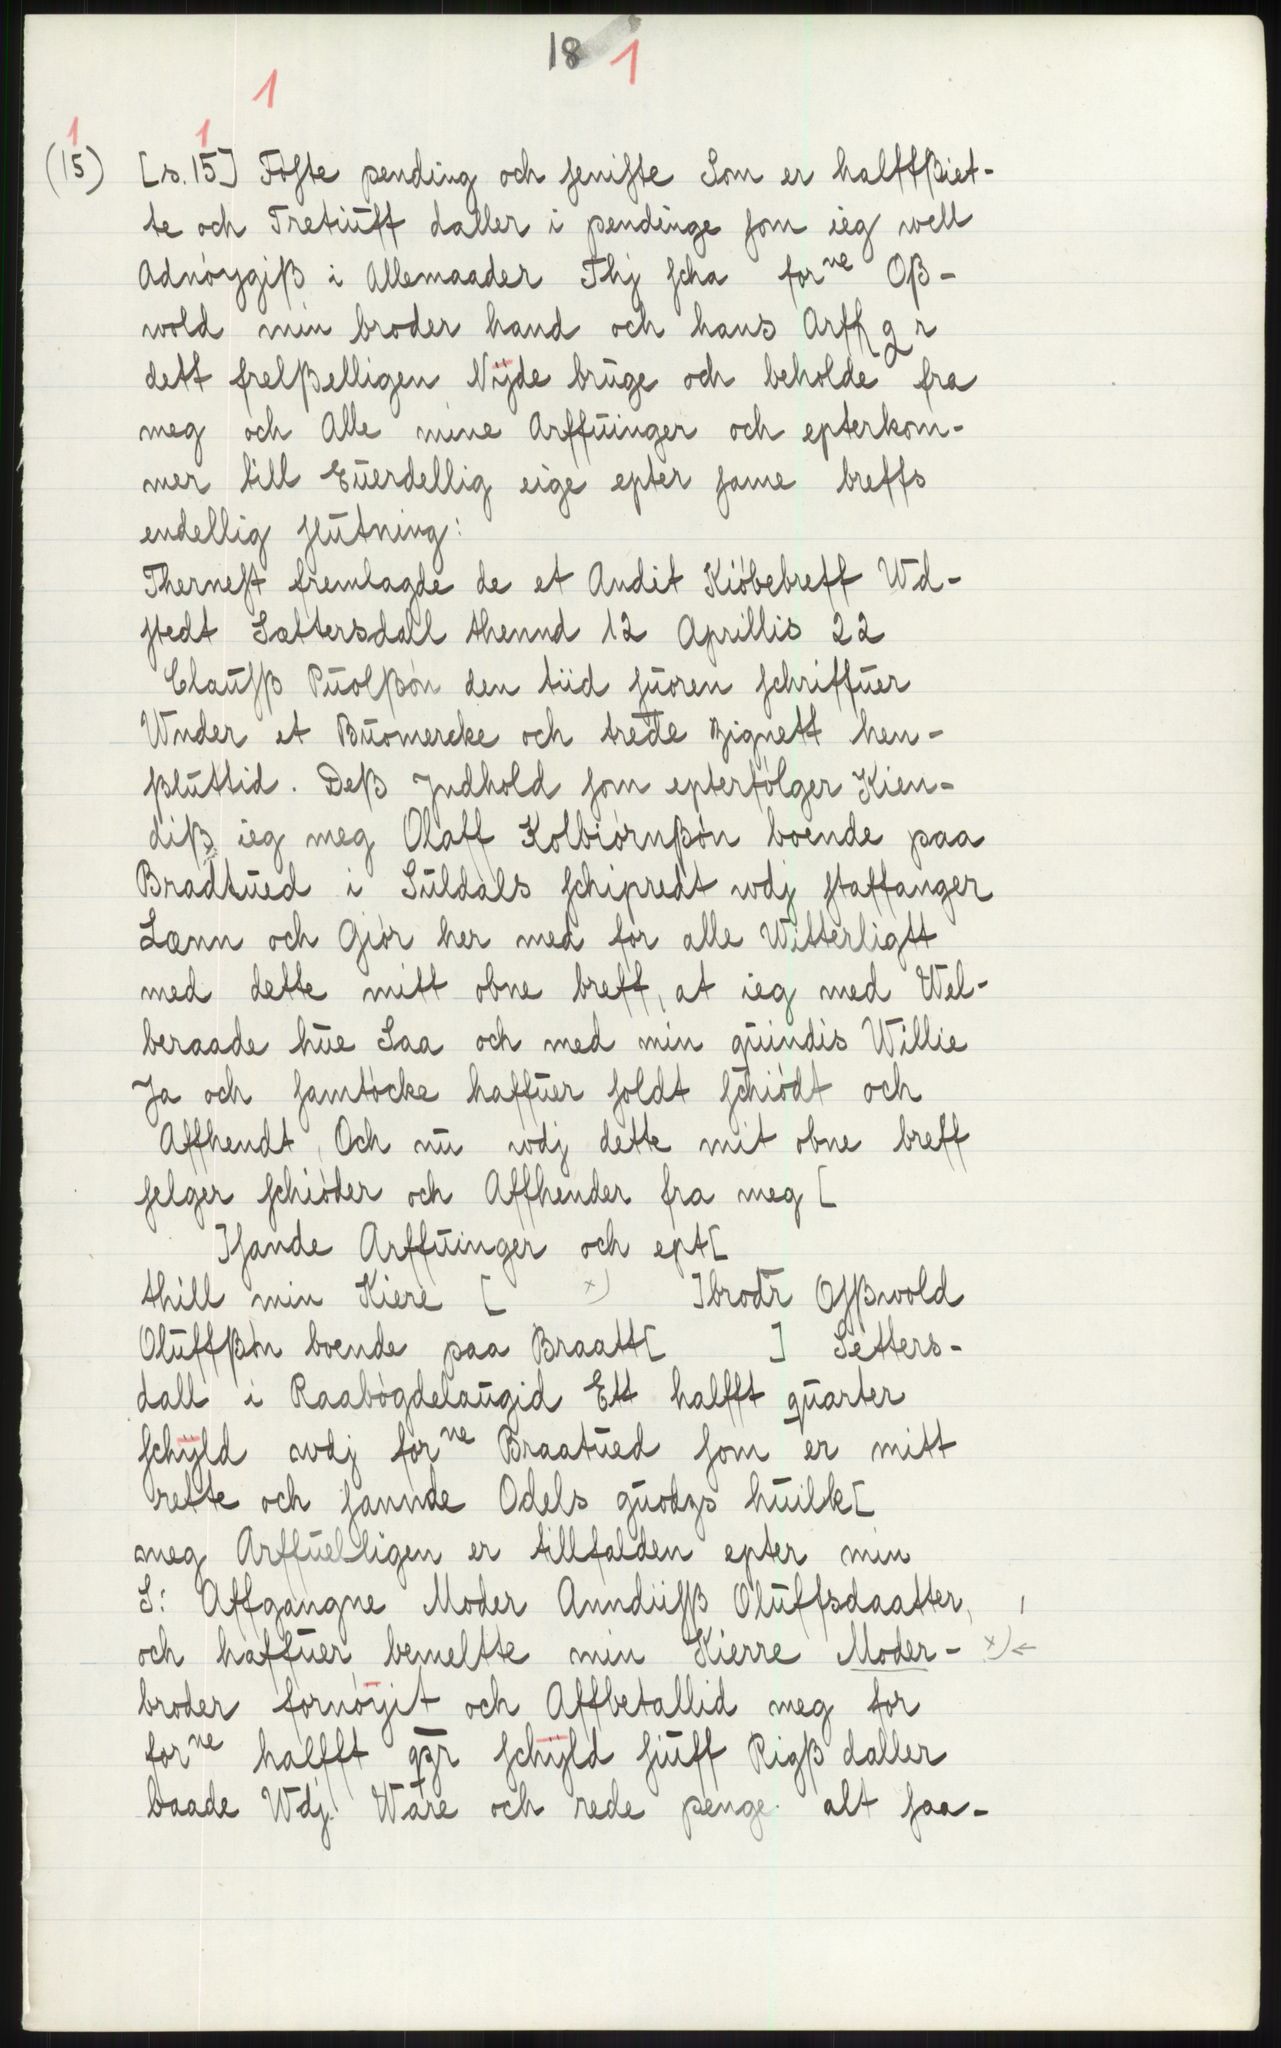 18 1
1
1 1
(15) [s. 15] Føste pending och senifte Som er halfftßiet-
te och Tretiuff daller i pendinge som ieg well
Adnøygiß i Allemaader Thj scha forne Oß-
wold min broder hand och hans Arff g r
dett frelßelligen Nÿde bruge och beholde fra
meg och Alle mine Arffuinger och epterkom-
mer till Euerdellig eige epter same breffs
endellig slutning:
Thernest fremlagde de et Andit Kiøbebreff Wd-
stedt Sættersdall thennd 12 Aprillis 22
Clausß Puolßøn den tiid suoren schriffuer
Wnder et Buomercke och trede zignett hen-
ßluttid. Deß Jndhold som epterfølger Kien-
diß ieg meg Olaff Kolbiørnßøn boende paa
Bradtued i Suldals schipredt wdj staffanger
Lænn och Giør her med for alle Witterligtt
med dette mitt obne breff, at ieg med Wel-
beraade hue Saa och med min quindis Willie
Ja och samtøcke haffuer soldt schiødt och
Affhendt, Och nu wdj dette mit obne breff
selger schiøder och Affhender fra meg [
]sande Arffuinger och ept[
thill min Kiere [ x) ]brodr Osßwold
Oluffßøn boende paa Braatt[ ] Setters-
dall i Raabøgdelaugid Ett halfft quarter
schÿld wdj forne Braatued som er mitt
rette och sannde Odels guodzs huilk[
meg Arffuelligen er tillfalden epter min
S: Affgangne Moder Anndiisß Oluffsdaatter,
och haffuer bemeltte min Kierre Moder- x) ←
broder fornøyit och Affbetallid meg for
forne halfft qzr schÿld siuff Rigß daller
baade Wdj Ware och rede penge alt saa-